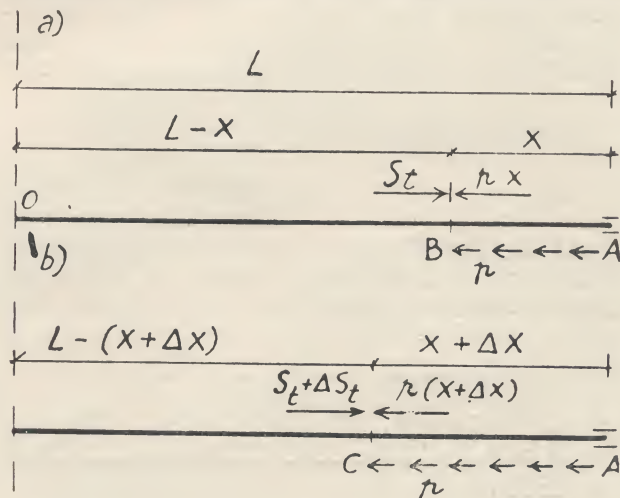 a)
L
L - X X
St p x
O
B A
p
b)
L - (X + ΔX) X + ΔX
St + ΔSt p(X+ΔX)
C A
p